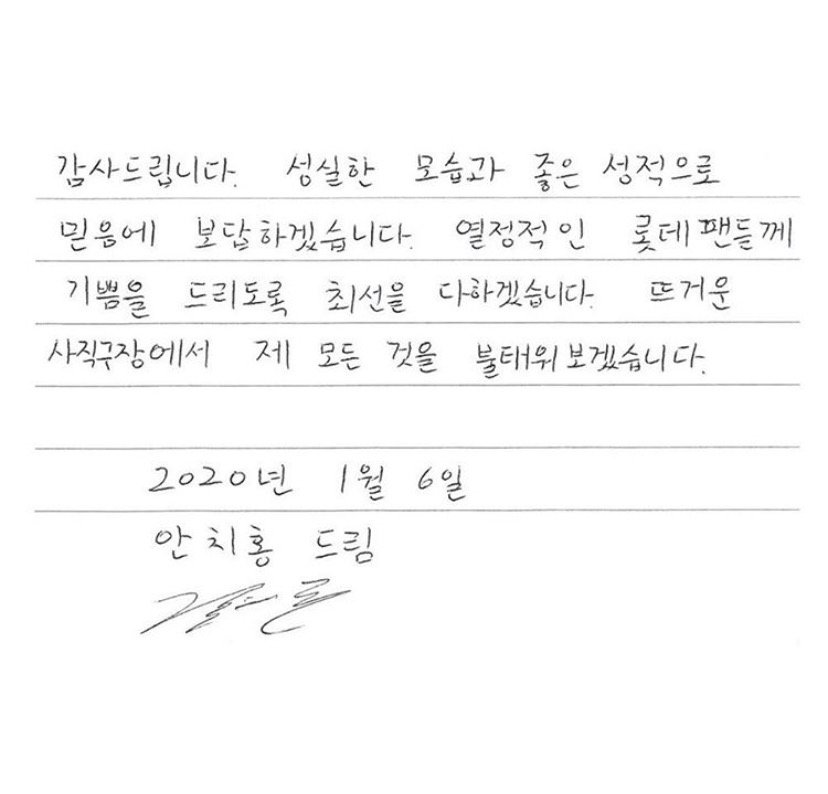 감사드립니다. 성실한 모습과 좋은 성적으로
믿음에 보답하겠습니다. 열정적인 롯데팬들께
기쁨을 드리도록 최선을 다하겠습니다. 뜨거운
사직구장에서 제 모든 것을 불태워보겠습니다.
2020년 1월 6일
안치홍 드림